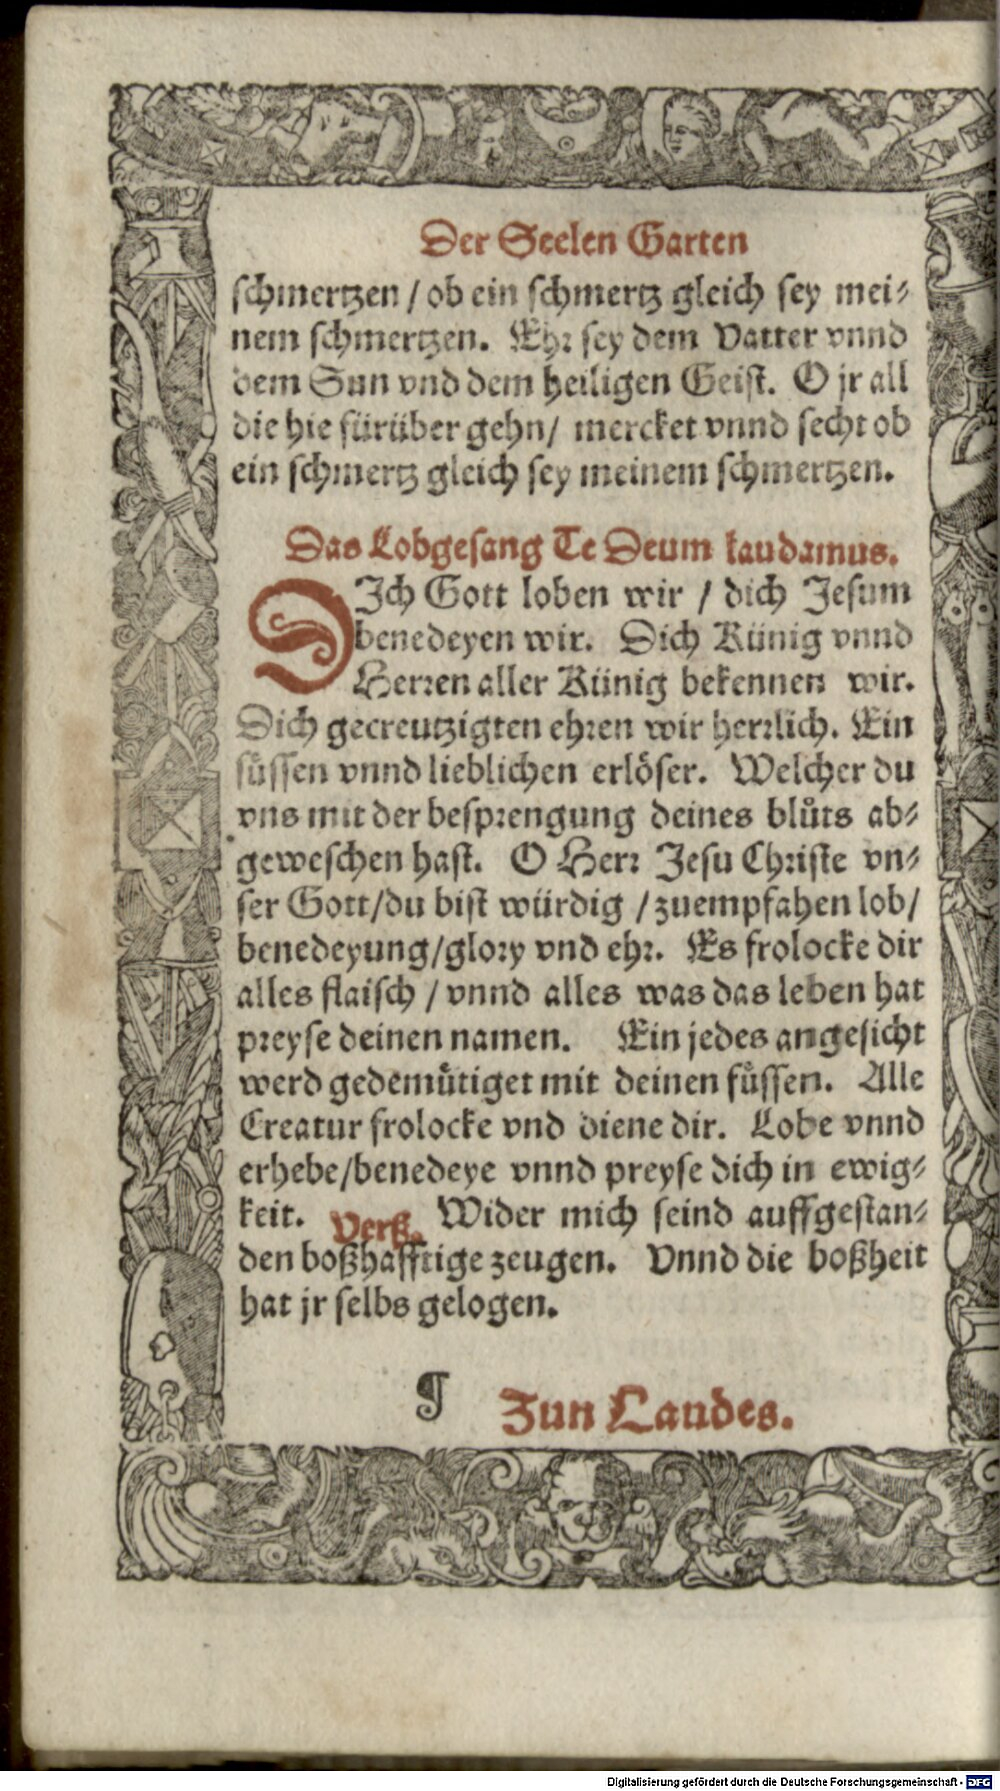 Der Seelen Garten
schmertzen / ob ein schmertz gleich sey mei-
nem schmertzen. Ehr sey dem Vatter vnnd
dem Sun vnd dem heiligen Geist. O jr all
die hie fürüber gehn / mercket vnnd secht ob
ein schmertz gleich sey meinem schmertzen.
Das Lobgesang Te Deum laudamus.
DIch Gott loben wir / dich Jesum
benedeyen wir. Dich Künig vnnd
Herren aller Künig bekennen wir.
Dich gecreutzigten ehren wir herrlich. Ein
süssen vnnd lieblichen erlöser. Welcher du
vns mit der besprengung deines blůts ab-
geweschen hast. O Herr Jesu Christe vn-
ser Gott/du bist würdig / zuempfahen lob/
benedeyung/glory vnd ehr. Es frolocke dir
alles flaisch / vnnd alles was das leben hat
preyse deinen namen. Ein jedes angesicht
werd gedemütiget mit deinen füssen. Alle
Creatur frolocke vnd diene dir. Lobe vnnd
erhebe/benedeye vnnd preyse dich in ewig-
keit. Verß. Wider mich seind auffgestan-
den boßhafftige zeugen. Vnnd die boßheit
hat jr selbs gelogen.
¶ Zun Laudes.
Digitalisierung gefördert durch die Deutsche Forschungsgemeinschaft - DFG